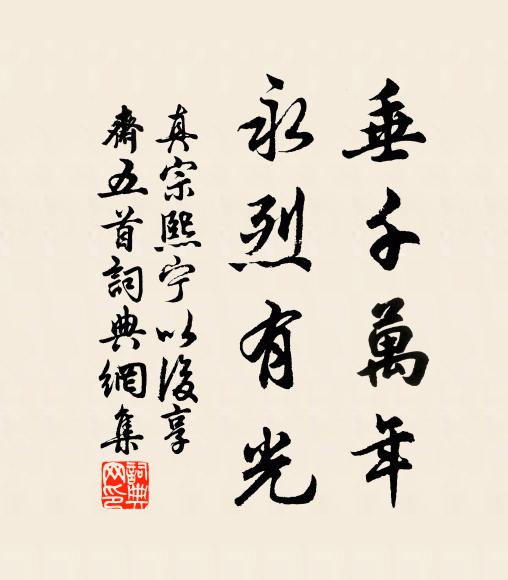 垂千萬年
永烈有光
真宗熙宁以後享
齋五首詞典網集
詞典
网印